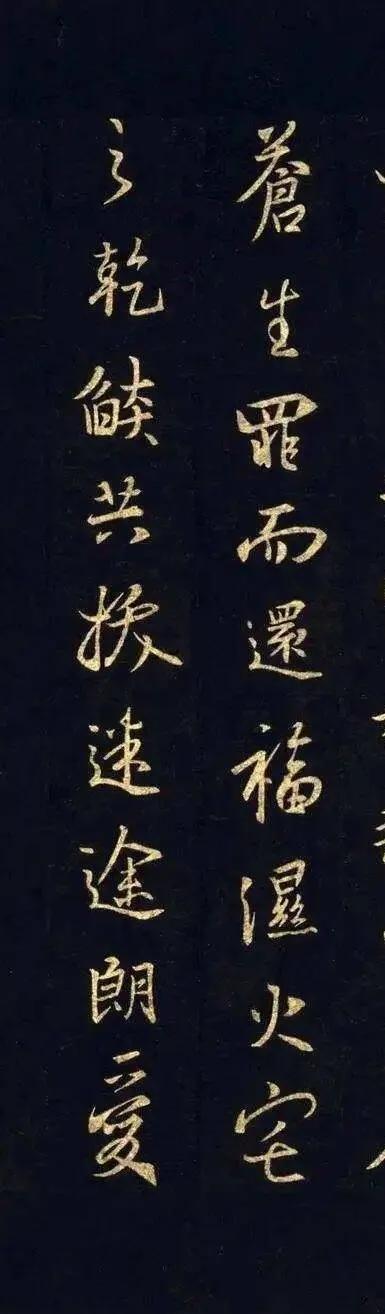 蒼生罪而還福濕火宅
之乾燄共拔迷途朗愛